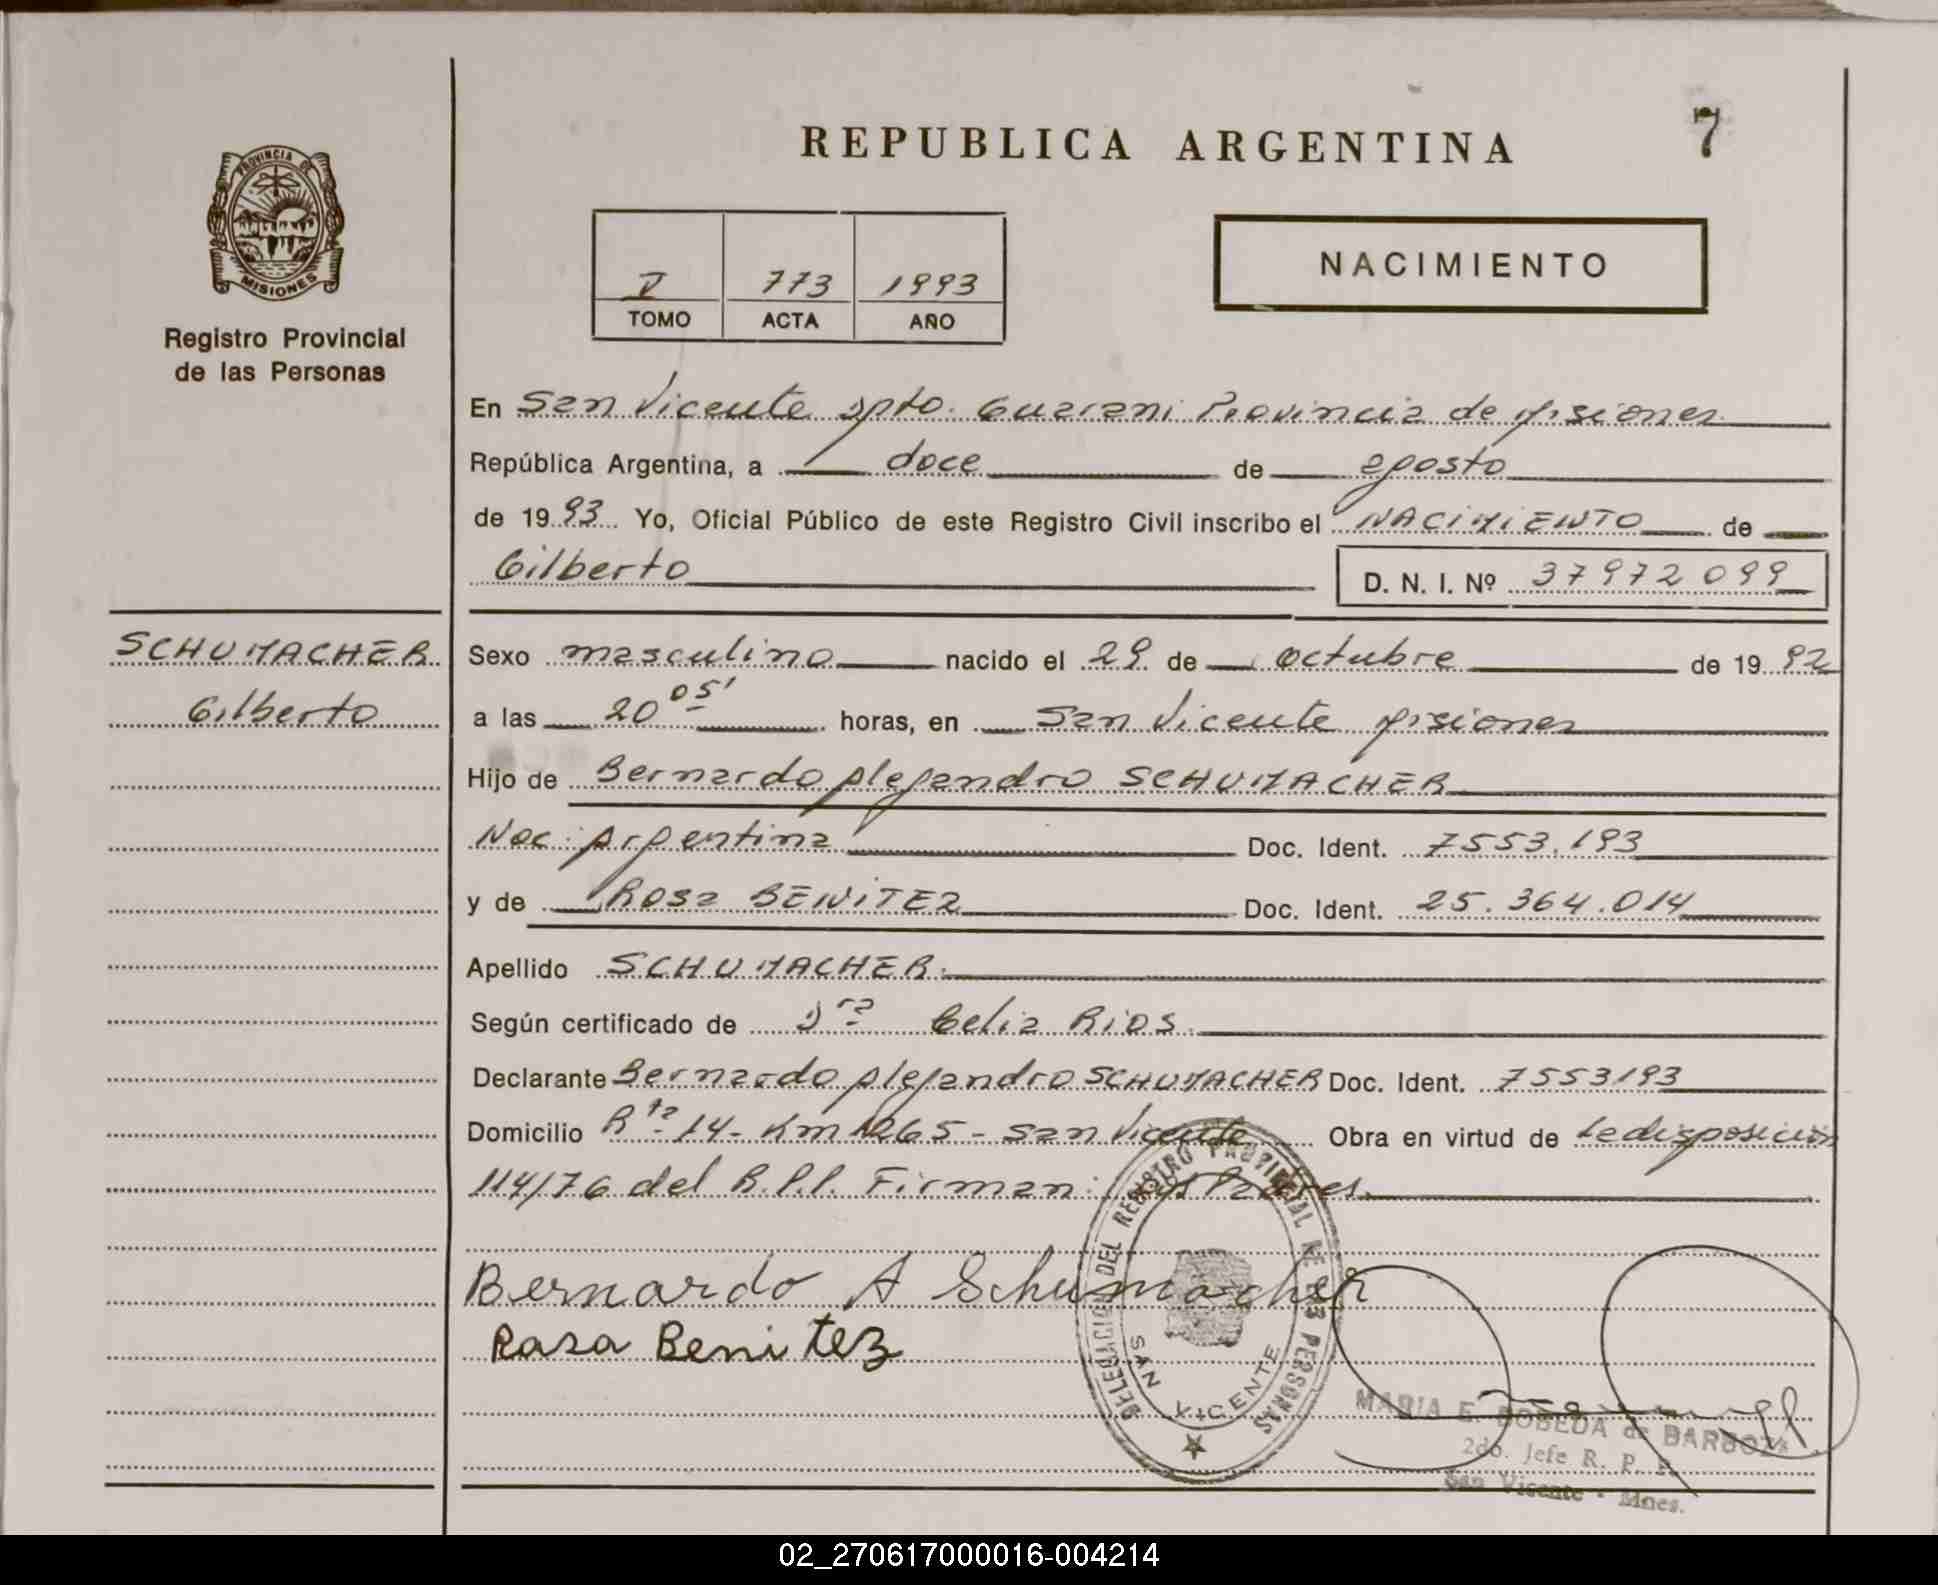 REPUBLICA ARGENTINA
7
PROVINCIA DE
MISIONES
Registro Provincial
de las Personas
773 1993
TOMO ACTA AÑO
NACIMIENTO
En San Vicente Dpto. Guarani Provincia de Misiones
República Argentina, a doce de agosto
de 1993 Yo, Oficial Público de este Registro Civil inscribo el NACIMIENTO de
Gilberto D. N. I. Nº 37972099
SCHUMACHER
Gilberto
Sexo masculino nacido el 29 de octubre de 1992
a las 20 05' horas, en San Vicente Misiones
Hijo de Bernardo Alejandro SCHUMACHER
Nac: Argentina Doc. Ident. 7553.193
y de Rosa BENITEZ Doc. Ident. 25.364.014
Apellido SCHUMACHER.
Según certificado de Dra Celia Rios.
Declarante Bernardo Alejandro SCHUMACHER Doc. Ident. 7553193
Domicilio Rta 14- Km 1265- San Vicente Obra en virtud de Ledisposición
114/76 del R.P.P. Firman: los Padres.
Bernardo A Schumacher
Rasa Benitez
DELEGACION DEL REGISTRO PROVINCIAL DE LAS PERSONAS
SAN VICENTE
MARIA E. BOBEDA de BARBOZA
2do. Jefe R. P. P.
San Vicente - Mnes.
02_270617000016-004214